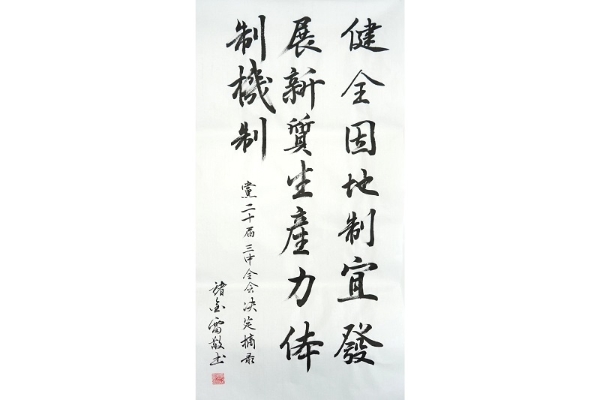 健全因地制宜發
展新質生產力体
制機制
黨二十届三中全会决定摘录
諸金雷敬书